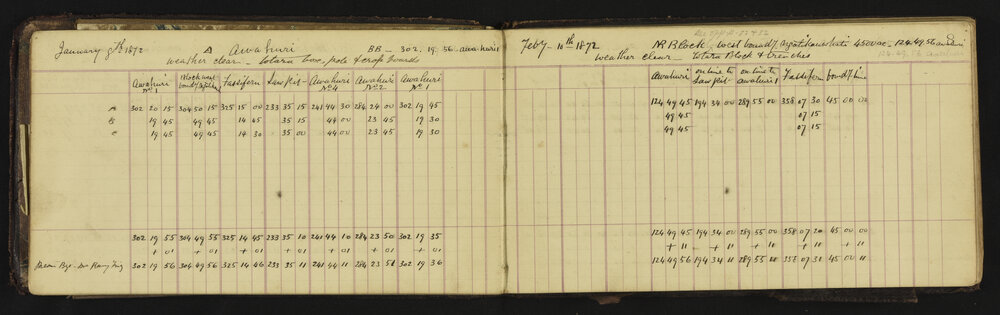 January 9th 1872 A Awahuri BB - 302.19.56 awahuri
weather clear - totara tree, pole & cross boards
Awahuri No 1 Block west boundy Fastifern Sawpit Awahuri No 4 Awahuri No 2 Awahuri No 1
A 302 20 15 304 50 15 325 15 00 233 35 15 241 44 30 284 24 00 302 19 45
B 19 45 49 45 14 45 35 15 44 00 23 45 19 30
C 19 45 49 45 14 30 35 00 44 00 23 45 19 30
302 19 55 304 49 55 325 14 45 233 35 10 241 44 10 284 23 50 302 19 35
+ 01 + 01 + 01 + 01 + 01 + 01 + 01
Mean Bge 302 19 56 304 49 56 325 14 46 233 35 11 241 44 11 284 23 51 302 19 36
Feby 10th 1872 NR Block west boundy 4500 ac - 124.49.56
weather clear - totara Block & trenches
Awahuri on line to Sawpit on line to awahuri 1 Fastifern boundy line
124 49 45 194 34 00 289 55 00 358 07 30 45 00 00
49 45 07 15
49 45 07 15
124 49 45 194 34 00 289 55 00 358 07 20 45 00 00
+ 11 + 11 + 11 + 11 + 11
124 49 56 194 34 11 289 55 11 358 07 31 45 00 11